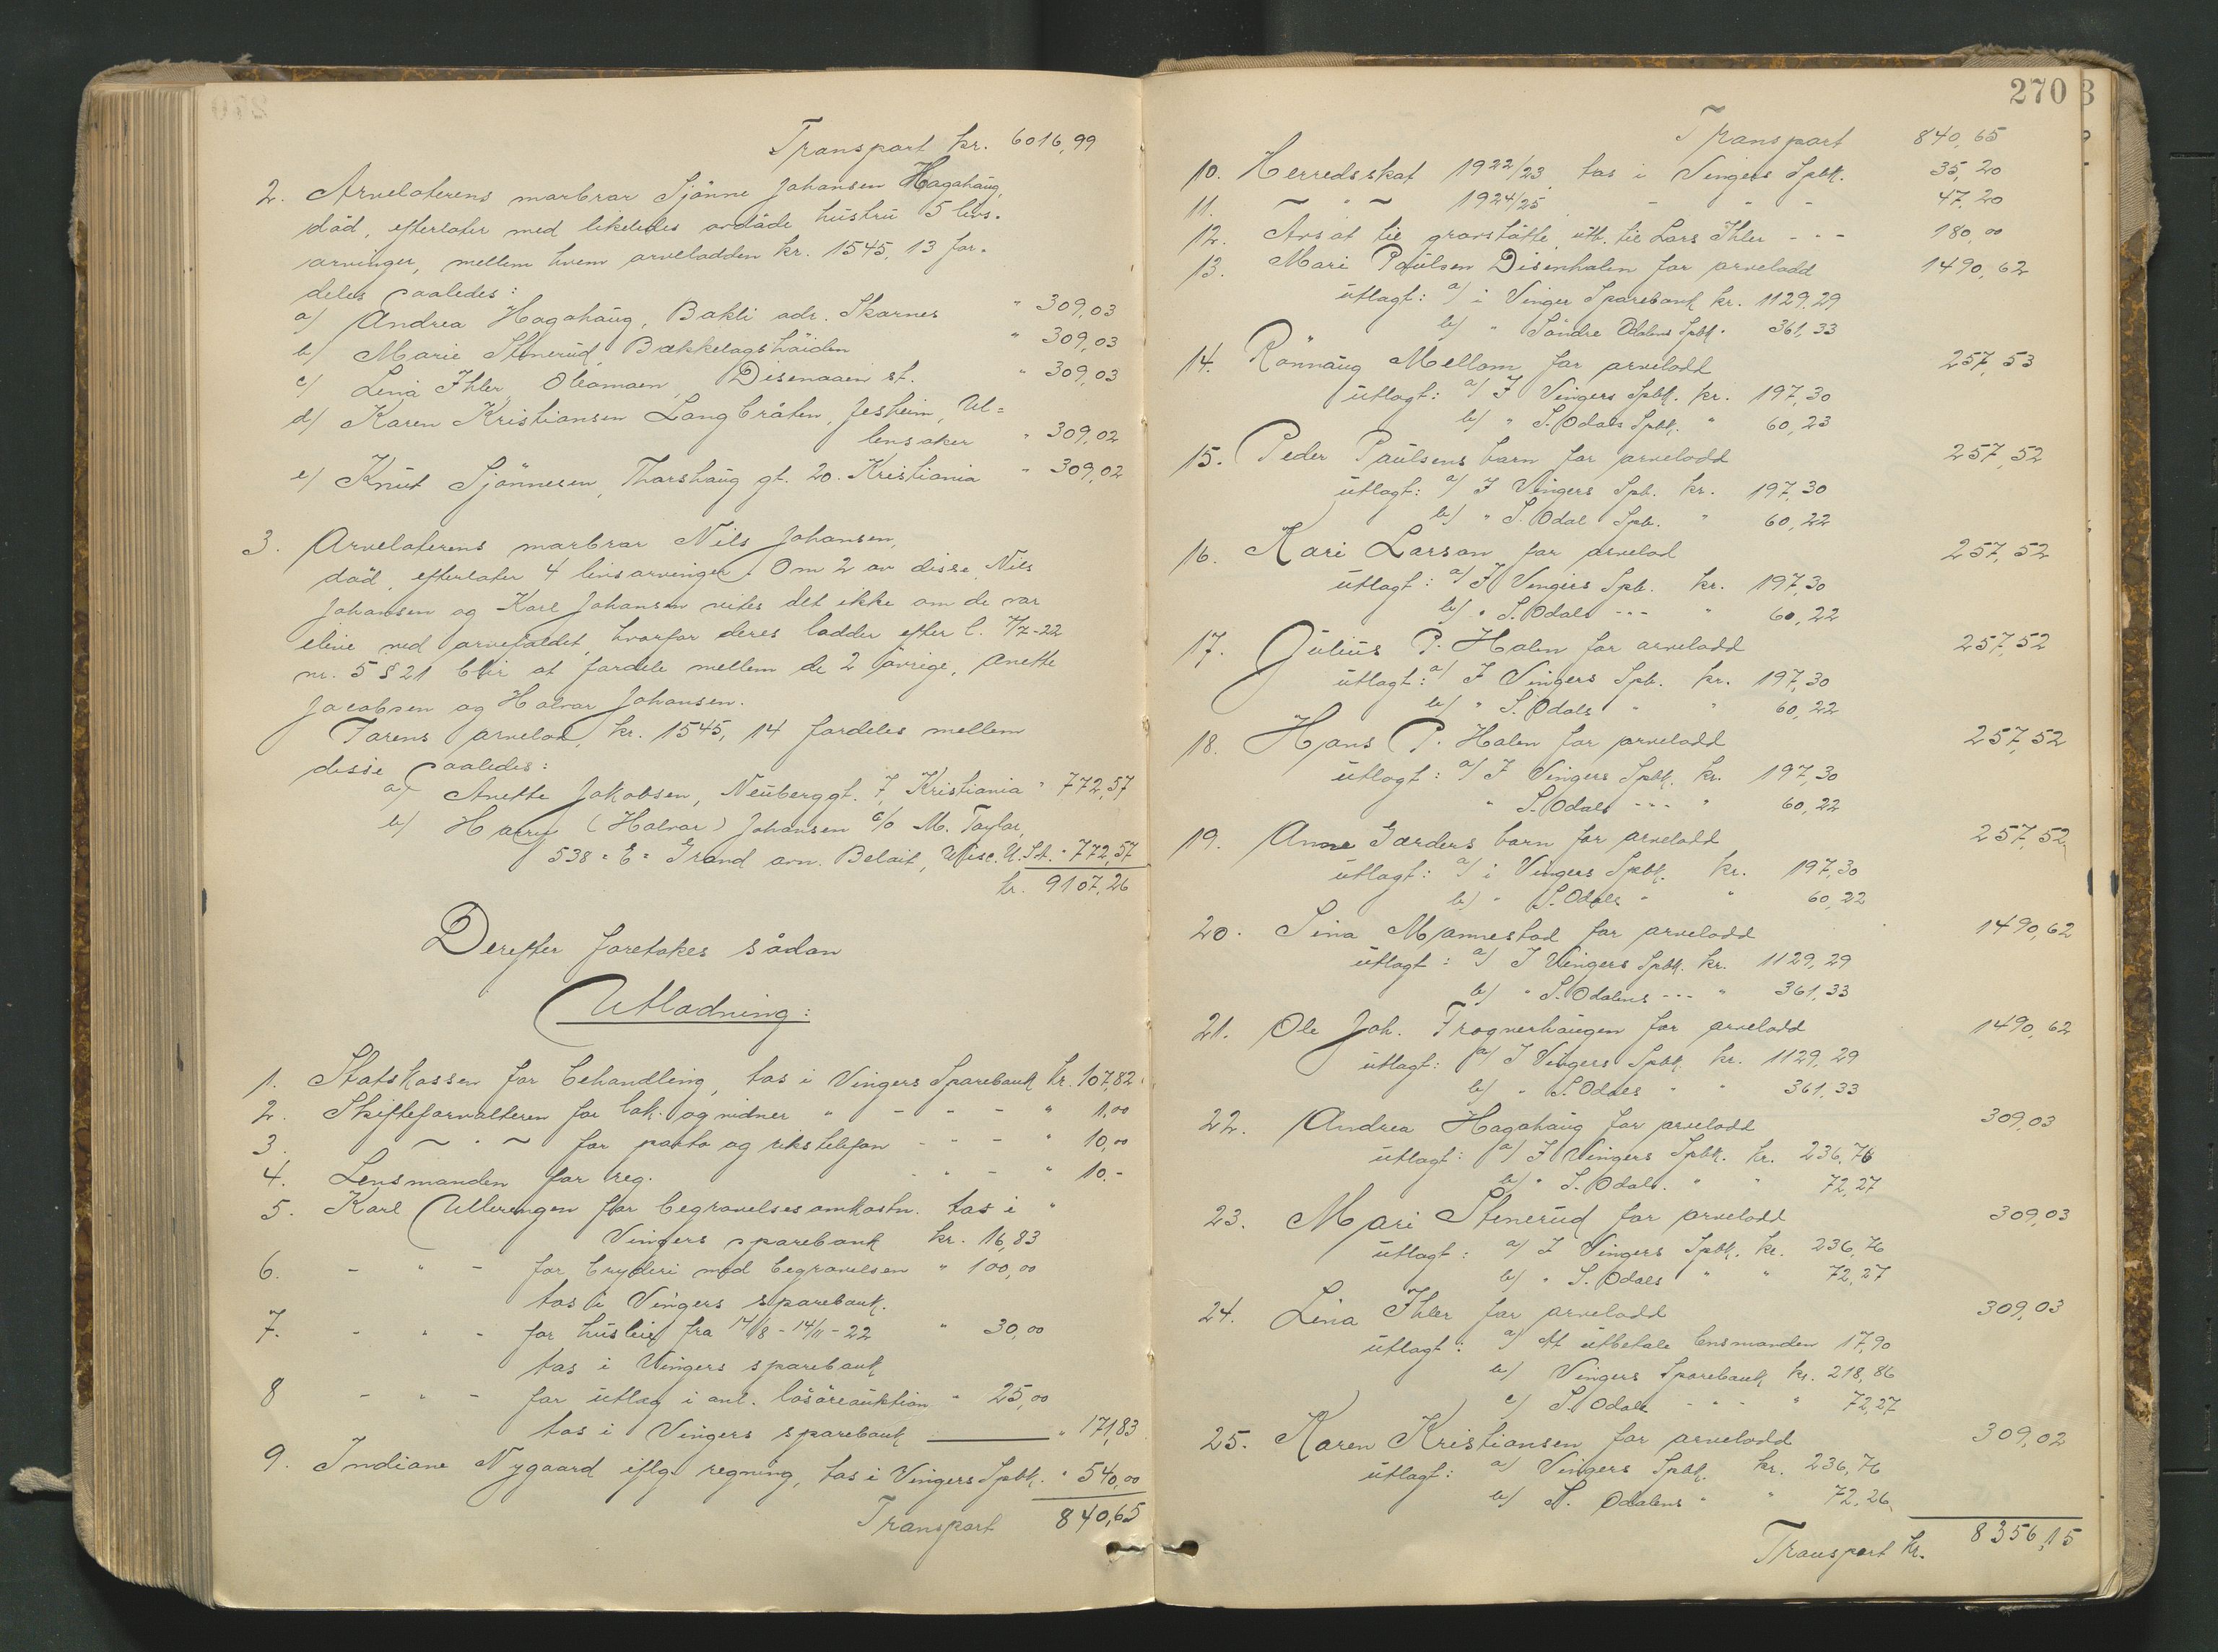 Transport kr. 6016,99
2. Arvelaterens morbror Sjönne Johansen Hagahaug,
död, efterlater med likeledes avdöde hustru 5 livs-
arvinger, mellem hvem arvelodden kr. 1545,13 for-
deles saaledes:
a) Andrea Hagahaug, Bakli adr. Skarnes " 309,03
b) Marie Stenerud, Bækkelagshöiden " 309,03
c) Lina Ihler, Disenaaen st. " 309,03
d) Karen Kristiansen Langbråten, Jesheim, Ul=
lensaker " 309,02
e) Knut Sjönnesen, Thorshaug gt. 20. Kristiania " 309,02
3. Arvelaterens morbror Nils Johansen,
död, efterlater 4 livsarvinger. Om 2 av disse, Nils
Johansen og Karl Johansen vites det ikke om de var
ilive ved arvefaldet, hvorfor deres lodder efter l. 7/7-22
nr. 5 § 21 blir at fordele mellem de 2 övrige, Anette
Jacobsen og Halvor Johansen.
Farens arvelod, kr. 1545,14 fordeles mellem
disse saaledes:
a) Anette Jakobsen, Neuberggt. 7, Kristiania " 772,57
b) Harry (Halvor) Johansen c/o M. Taylor,
538 = E = Grand avn. Beloit, Wisc. U.St. " 772,57
kr. 9107,26
Derefter foretokes sådan
Utlodning:
1. Statskassen for behandling, tas i Vingers Sparebank kr. 107,82
2. Skifteforvalteren for lok. og vidner " - - - " 1,00
3. — " — for porto og rikstelefon - - - " 10,00
4. Lensmanden for reg. - " - " 10.-
5. Karl Ullerengen for begravelsesomkostn. tas i "
Vingers sparebank kr. 16,83
6. - " - for bryderi med begravelsen " 100,00
tas i Vingers sparebank.
7. - " - for husleie fra 14/8-14/11-22 " 30,00
tas i Vingers sparebank
8 - " - for utlæg i anl. lösöreauktion " 25,00
tas i Vingers sparebank " 171,83
9. Indiane Nygaard iflg. regning, tas i Vingers Spbk. " 540,00
Transport 840,65
270
Transport 840,65
10. Herredsskat 1922/23 tas i Vingers Spbk. 35,20
11. — " — 1924/25 - " - 47,20
12. Avsat til gravstötte, utb. til Lars Ihler - - - 180,00
13. Mari Paulsen Disenhalen for arvelodd 1490,62
utlagt: a) i Vinger Sparebank kr. 1129,29
b) " Söndre Odalens Spbk. 361,33
14. Rönnaug Mellom for arvelodd 257,53
utlagt: a) I Vingers Spbk. kr. 197,30
b) " S. Odals Spbk. " 60,23
15. Peder Paulsens barn for arvelodd 257,52
utlagt: a) I Vingers Spb. kr. 197,30
b) " S. Odal Spb. " 60,22
16. Kari Larson for arvelod 257,52
utlagt: a) I Vingers Spb. kr. 197,30
b) " S. Odals --- " 60,22
17. Julius P. Halen for arvelodd 257,52
utlagt: a) I Vingers Spb. kr. 197,30
b) " S. Odals " " 60,22
18. Hans P. Halen for arvelodd 257,52
utlagt: a) I Vingers Spbk. kr. 197,30
" S. Odals --- " 60,22
19. Anne Garders barn for arvelodd 257,52
utlagt: a) i Vingers Spbk. kr. 197,30
b) " S. Odals " " 60,22
20. Sina Mjannestad for arvelodd 1490,62
utlagt: a) I Vingers Spbk. kr. 1129,29
b) " S. Odalens --- " 361,33
21. Ole Joh. Frognerhaugen for arvelodd 1490,62
utlagt: a) I Vingers Spbk. kr. 1129,29
b) " S. Odals " " 361,33
22. Andrea Hagahaug for arvelodd 309,03
utlagt: a) I Vingers Spbk. kr. 236,76
b) " S. Odals. " " 72,27
23. Mari Stenerud for arvelodd 309,03
utlagt: a) I Vingers Spbk. kr. 236,76
b) " S. Odals " " 72,27
24. Lina Ihler for arvelodd 309,03
utlagt: a) At utbetale lensmanden 17,90
b) Vingers Sparebank kr. 218,86
c) S. Odals - " - " 72,27
25. Karen Kristiansen for arvelodd 309,02
utlagt: a) Vingers Spbk. kr. 236,76
b) S. Odalens " " 72,26
Transport kr. 8356,15